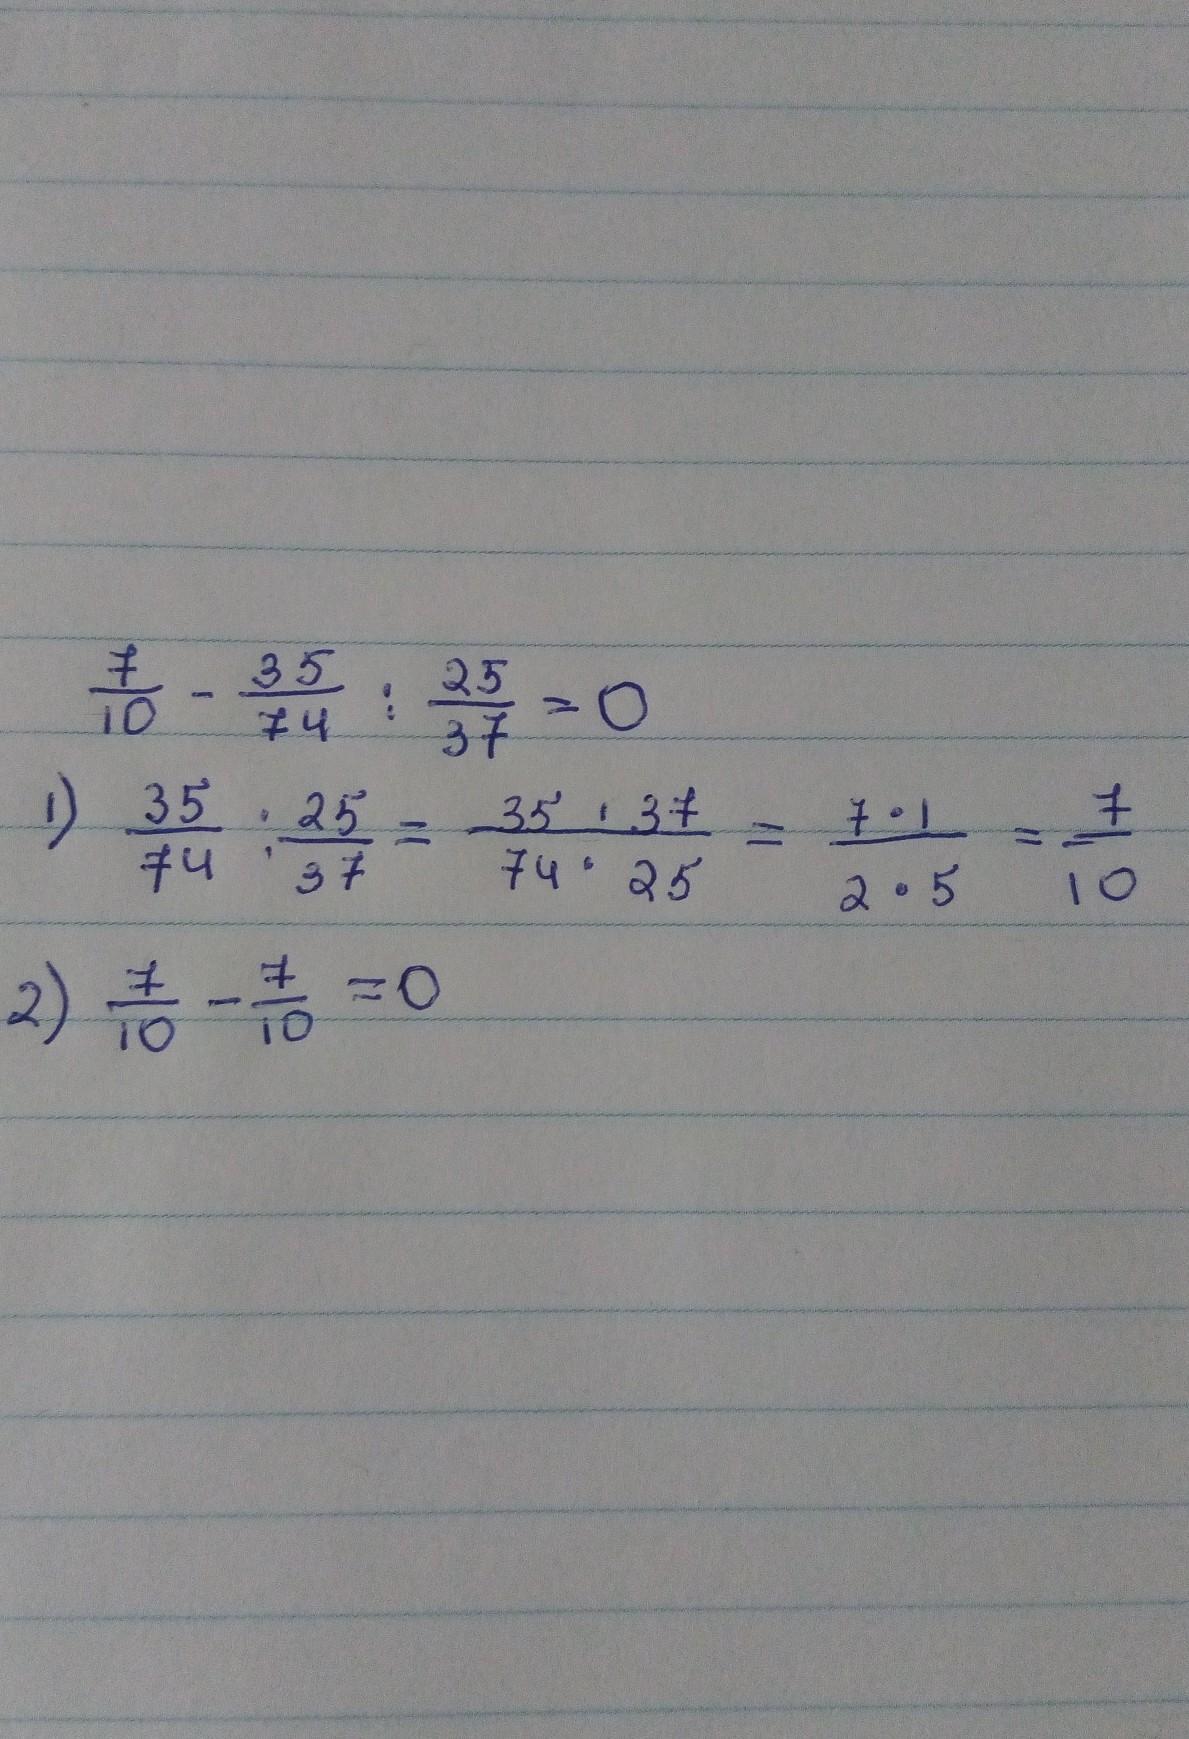 7/10 - 35/74 : 25/37 = 0
1) 35/74 : 25/37 = 35 · 37/74 · 25 = 7 · 1/2 · 5 = 7/10
2) 7/10 - 7/10 = 0